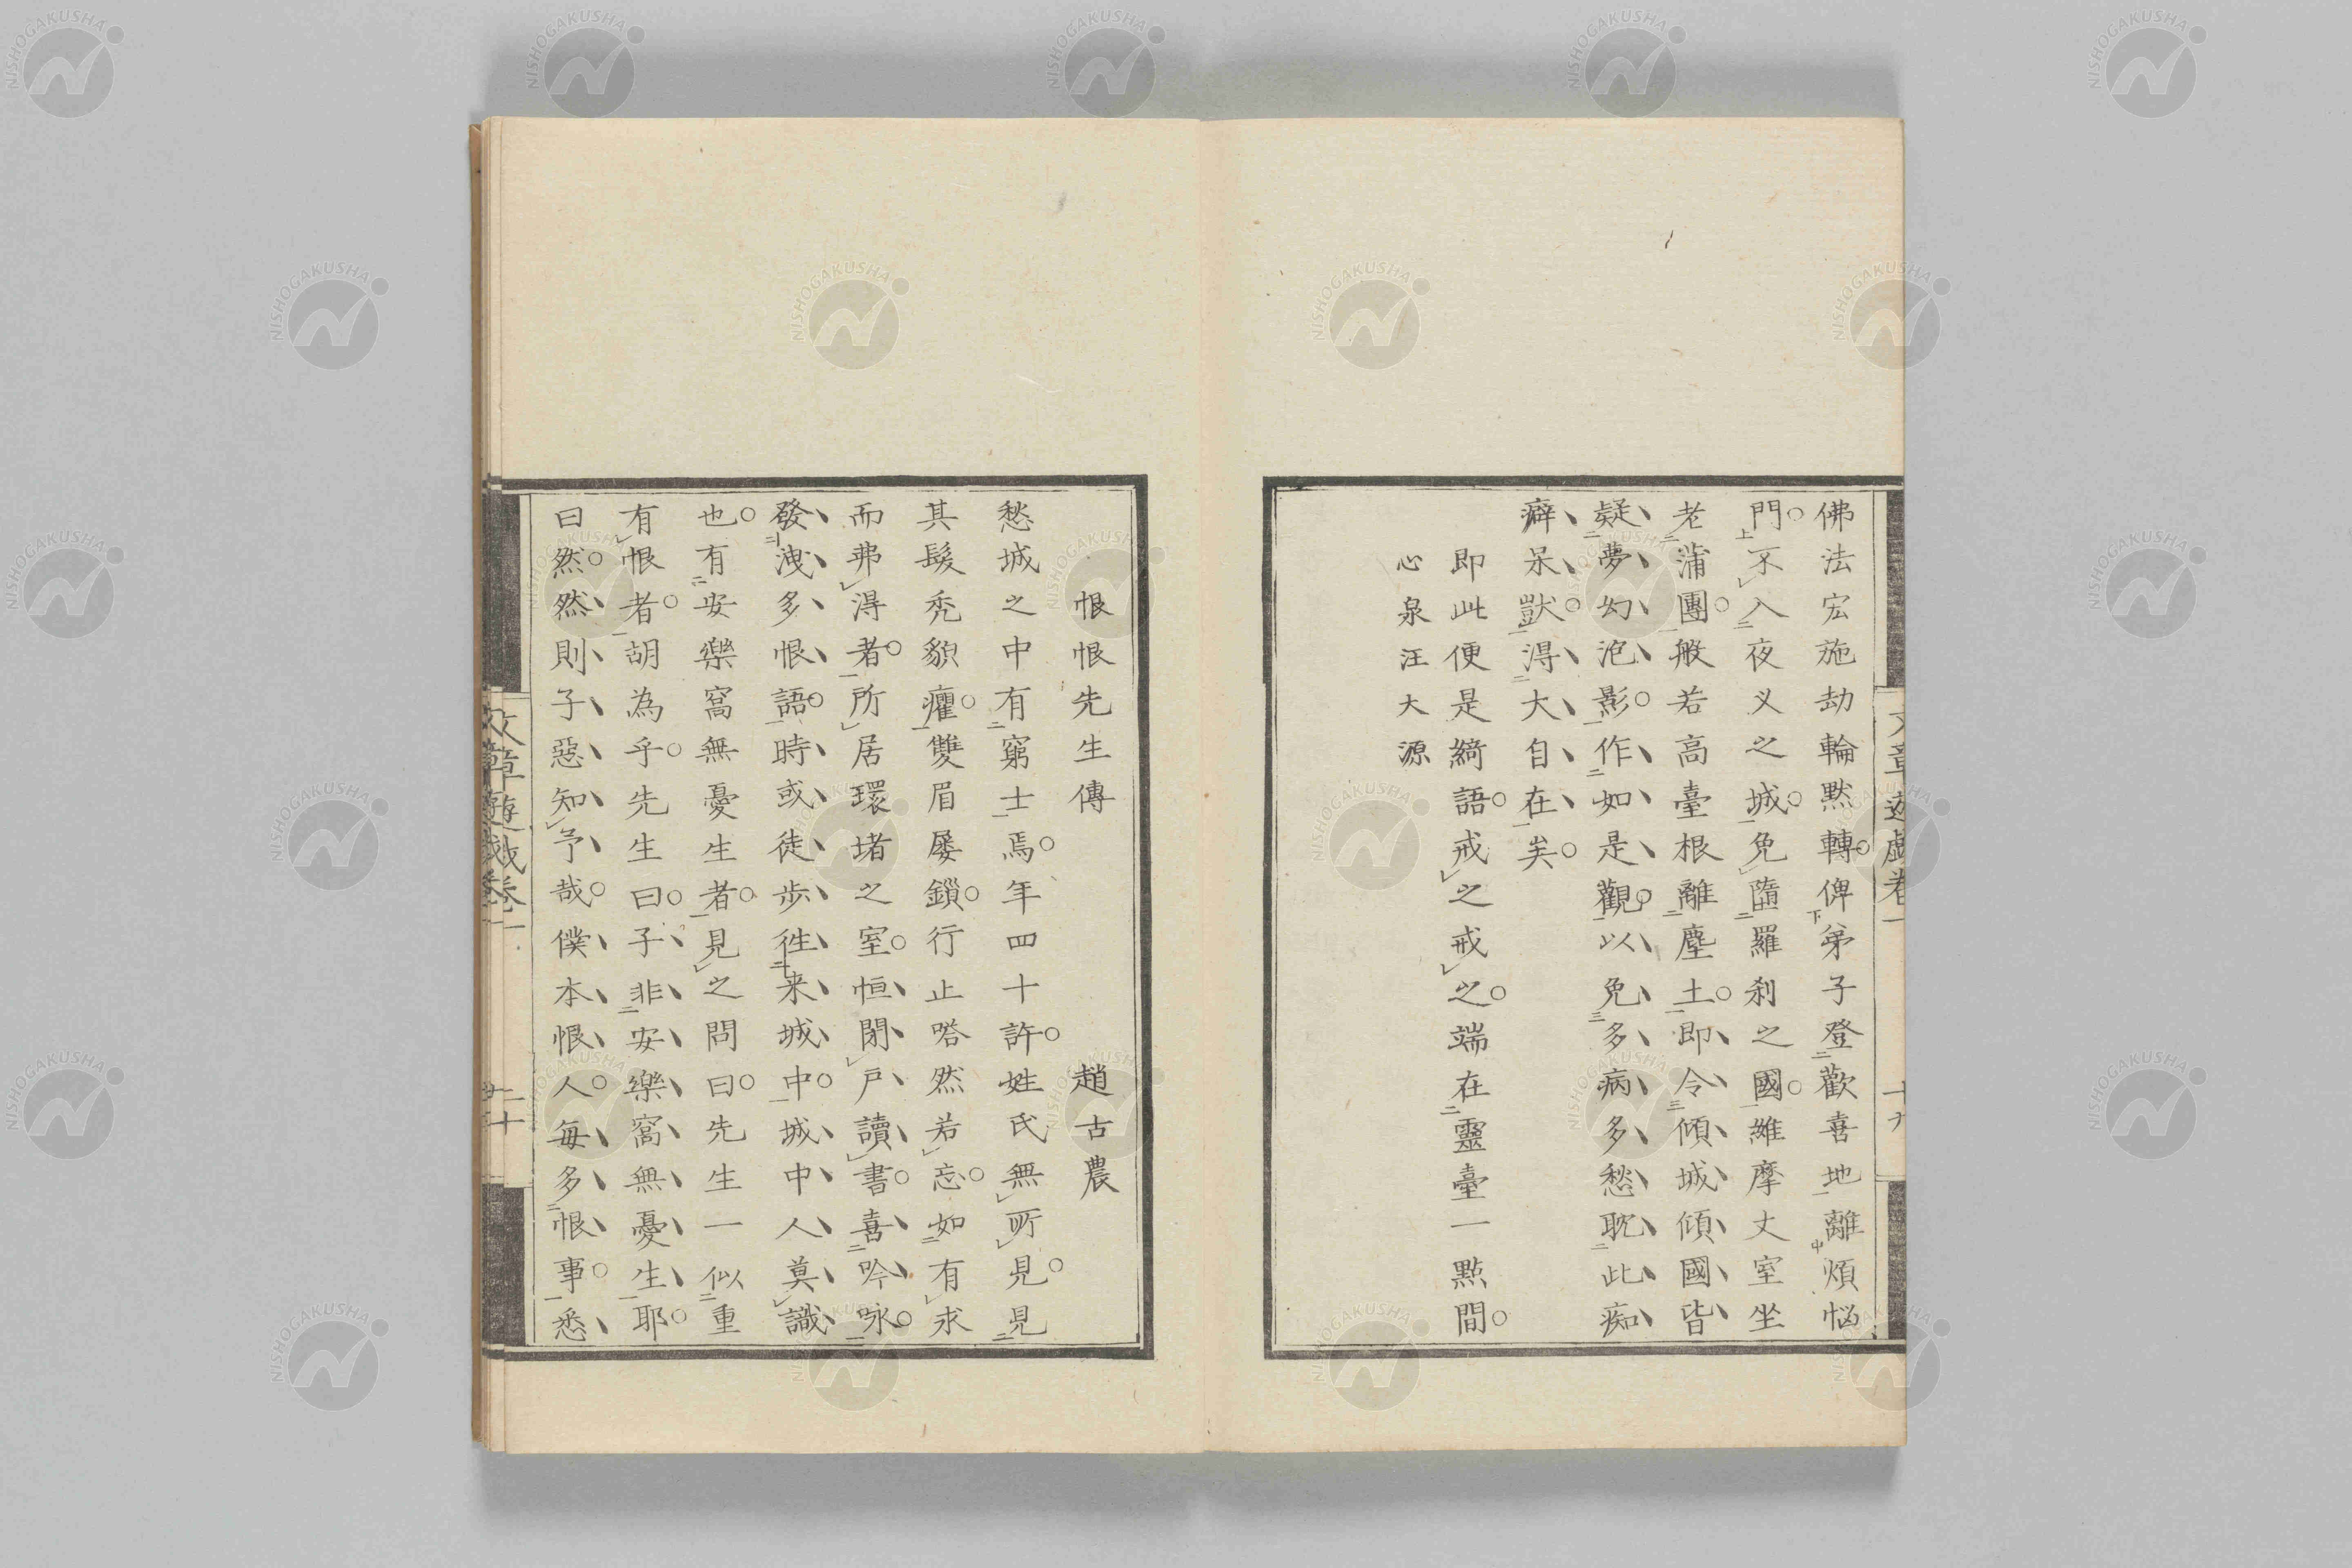 佛法宏施劫輪默轉。俾弟子登歡喜地離煩悩
門。不入夜叉之城。免墮羅刹之國。維摩丈室坐
老蒲團。般若高臺根離塵土。即令傾城傾國皆
疑夢幻泡影。作如是觀。以免多病多愁耽此痴
癖呆獃。得大自在矣。
即此便是綺語。戒之戒之。端在靈臺一點間。
心泉汪大源
文章遊戯卷一
十九
恨恨先生傳 趙古農
愁城之中有窮士焉。年四十許。姓氏無所見。見
其髮禿貌癯。雙眉屡鎖。行止嗒然若忘。如有求
而弗得者。所居環堵之室。恒閉戸讀書。喜吟咏。
發洩多恨語。時或徒歩徃来城中。城中人莫識
也。有安樂窩無憂生者。見之問曰。先生一似重
有恨者。胡為乎。先生曰。子非安樂窩無憂生耶。
曰然。然則子惡知予哉。僕本恨人。毎多恨事。悉
文章遊戯卷一
二十
NISHOGAKUSHA